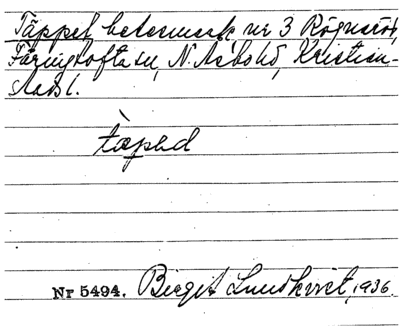 Täppet betesmark nr 3 Rögnaröd,
Färingtofta sn, N. Åsbo hd, Kristian-
stads l.
tæpəd
Nr 5494. Birgit Lundkvist, 1936.